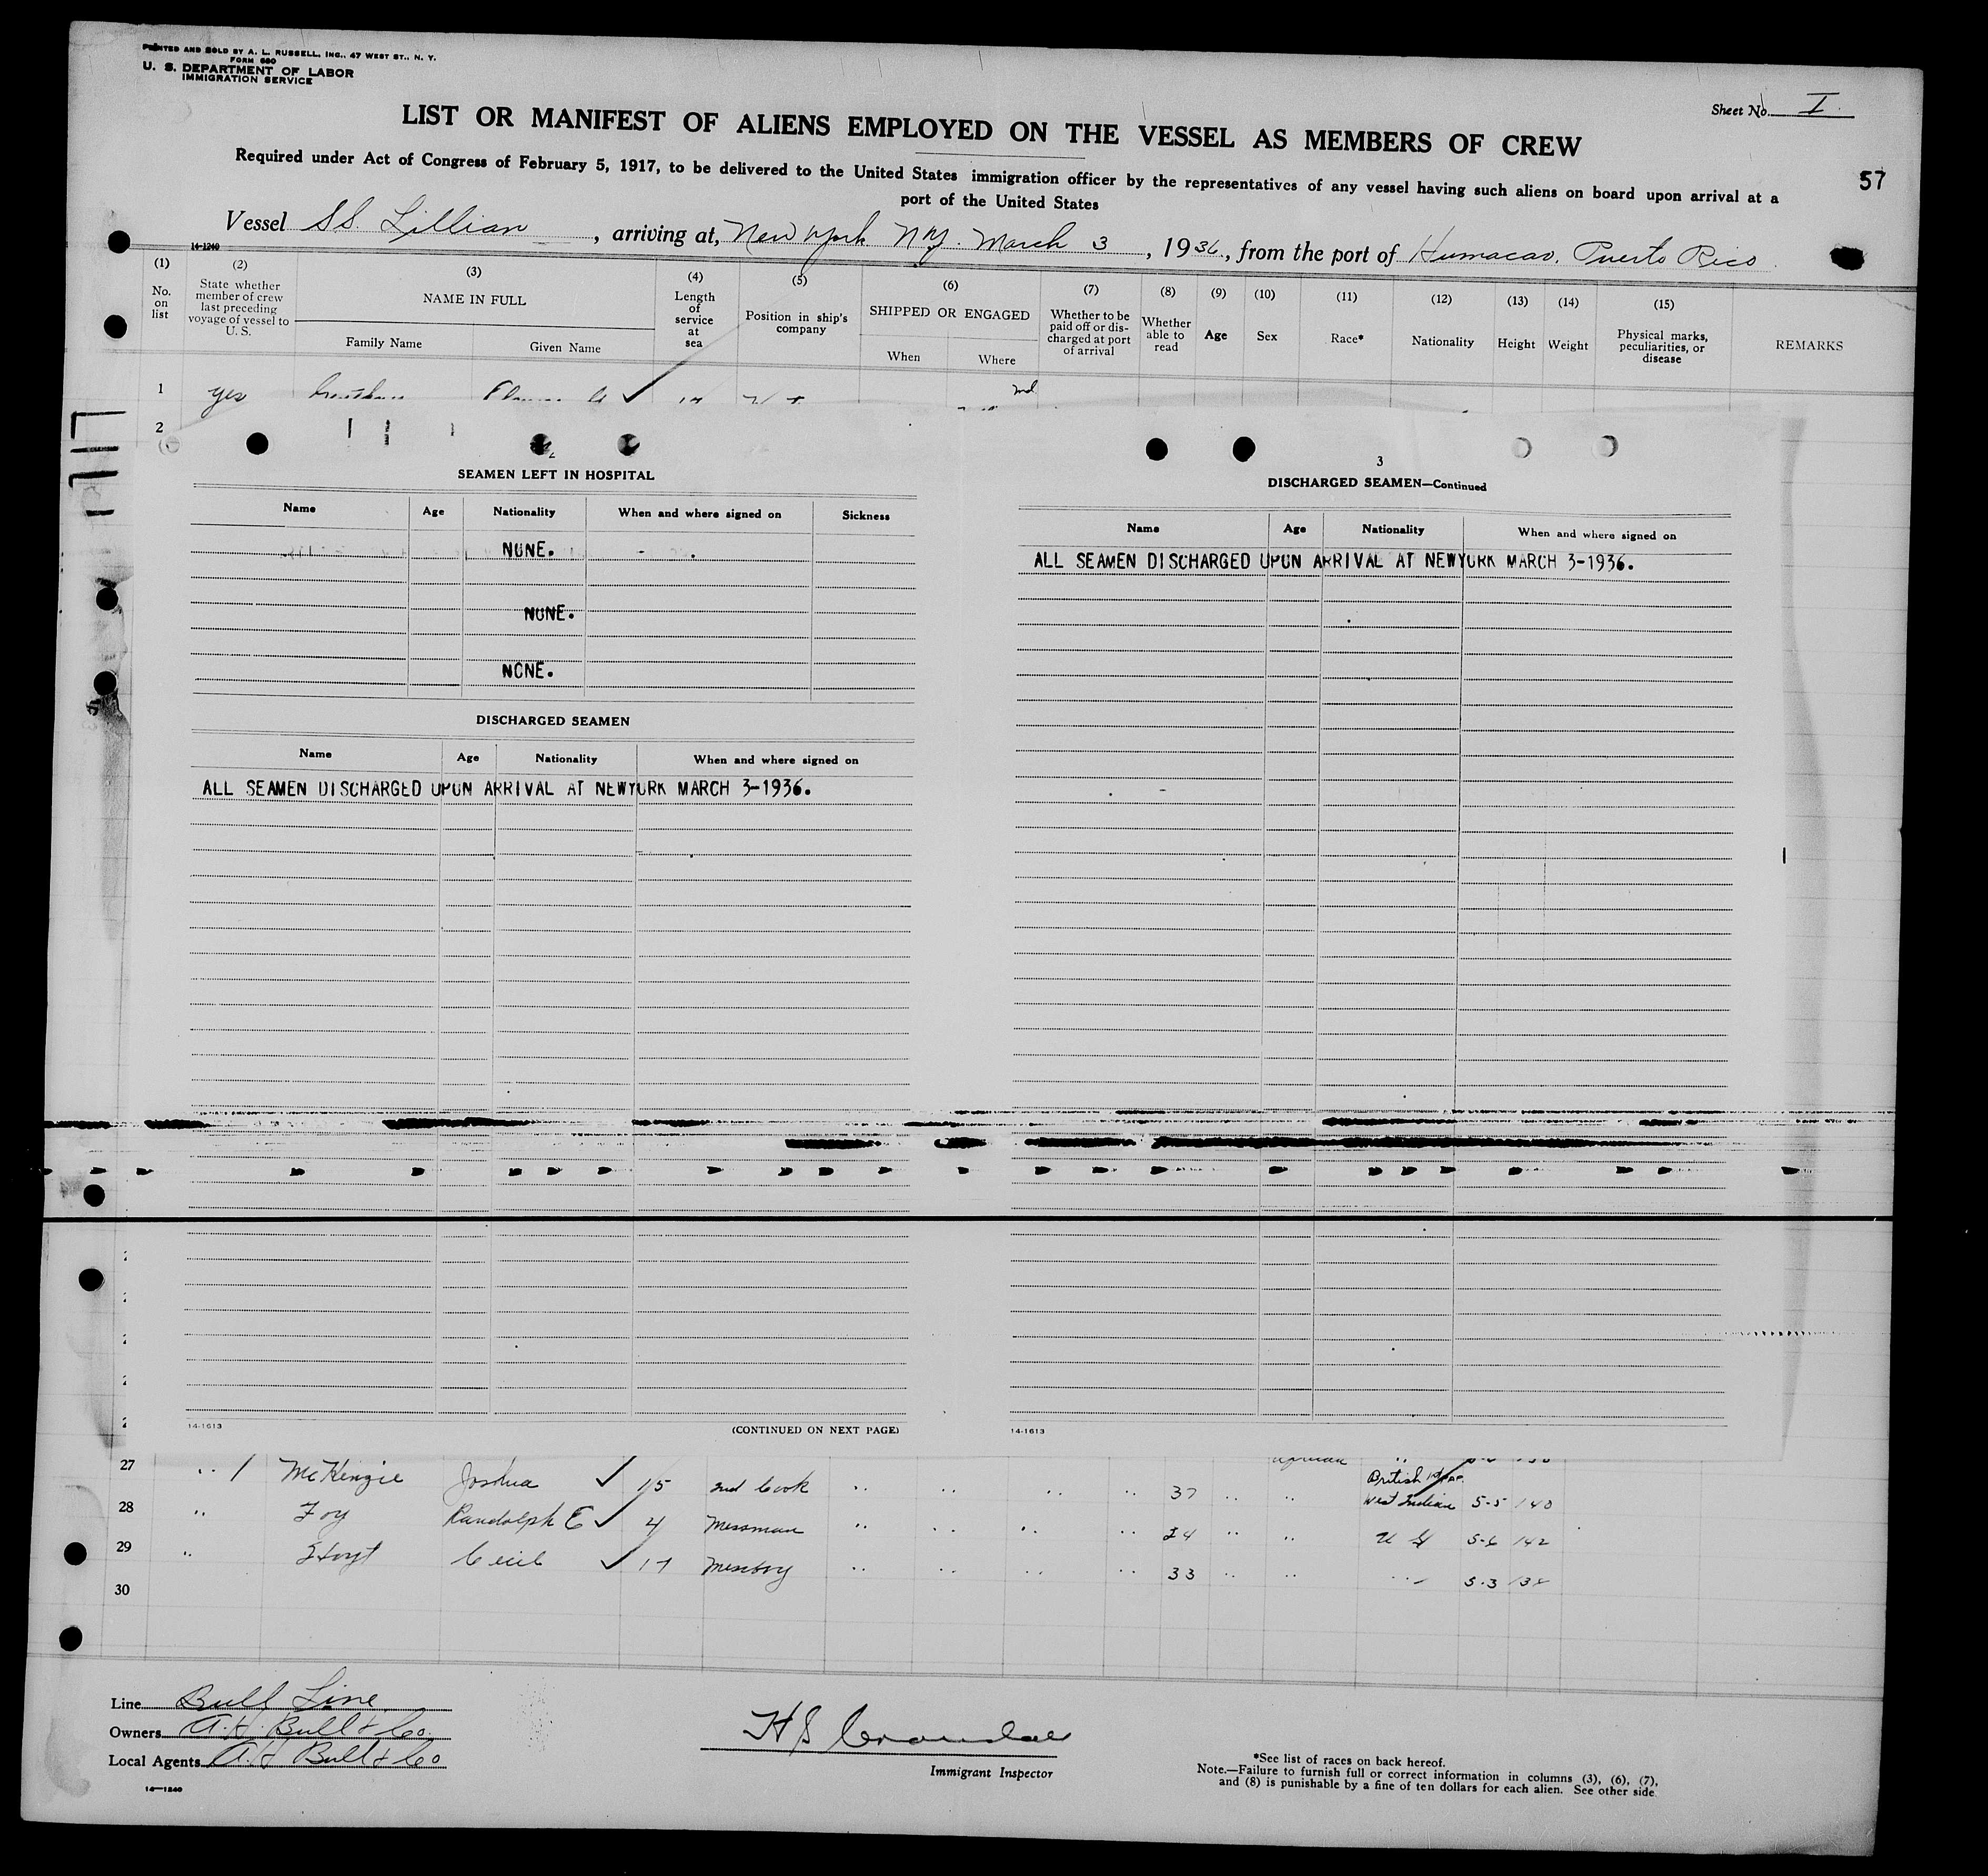 PRINTED AND SOLD BY A. L. RUSSELL, INC., 47 WEST ST., N. Y.
FORM 680
U. S. DEPARTMENT OF LABOR
IMMIGRATION SERVICE
Sheet No. I
LIST OR MANIFEST OF ALIENS EMPLOYED ON THE VESSEL AS MEMBERS OF CREW
Required under Act of Congress of February 5, 1917, to be delivered to the United States immigration officer by the representatives of any vessel having such aliens on board upon arrival at a
port of the United States
57
Vessel SS. Lillian, arriving at, New York N.Y. March 3, 1936, from the port of Humacao, Puerto Rico
14-1240
(1) (2) (3) (4) (5) (6) (7) (8) (9) (10) (11) (12) (13) (14) (15)
No. on list
State whether member of crew last preceding voyage of vessel to U. S.
NAME IN FULL
Family Name Given Name
Length of service at sea
Position in ship's company
SHIPPED OR ENGAGED
When Where
Whether to be paid off or discharged at port of arrival
Whether able to read
Age
Sex
Race*
Nationality
Height
Weight
Physical marks, peculiarities, or disease
REMARKS
1 yes
2
SEAMEN LEFT IN HOSPITAL
Name Age Nationality When and where signed on Sickness
NONE.
NONE.
NONE.
DISCHARGED SEAMEN
Name Age Nationality When and where signed on
ALL SEAMEN DISCHARGED UPON ARRIVAL AT NEWYORK MARCH 3-1936.
14-1613
(CONTINUED ON NEXT PAGE)
3
DISCHARGED SEAMEN—Continued
Name Age Nationality When and where signed on
ALL SEAMEN DISCHARGED UPON ARRIVAL AT NEWYORK MARCH 3-1936.
14-1613
27 McKenzie Joshua ✓ 15 2nd Cook 37 British West Indian 5-5 140
28 Foy Randolph E ✓ 4 Messman 24 5-6 142
29 Hoyt Cecil ✓ 17 Messboy 33 5-3
30
Line Bull Line
Owners A. H. Bull & Co.
Local Agents A. H. Bull & Co
14-1240
Immigrant Inspector
*See list of races on back hereof.
Note.—Failure to furnish full or correct information in columns (3), (6), (7),
and (8) is punishable by a fine of ten dollars for each alien. See other side